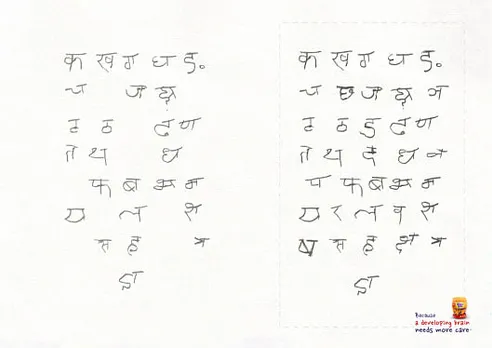 क ख ग घ ङ
च ज झ
ट ठ ढ ण
त थ ध
फ ब भ म
य ल श
स ह त्र
ज्ञ
क ख ग घ ङ
च छ ज झ ञ
ट ठ ड ढ ण
त थ द ध न
प फ ब भ म
य र ल व श
ष स ह क्ष त्र
ज्ञ
Because
a developing brain
needs more care